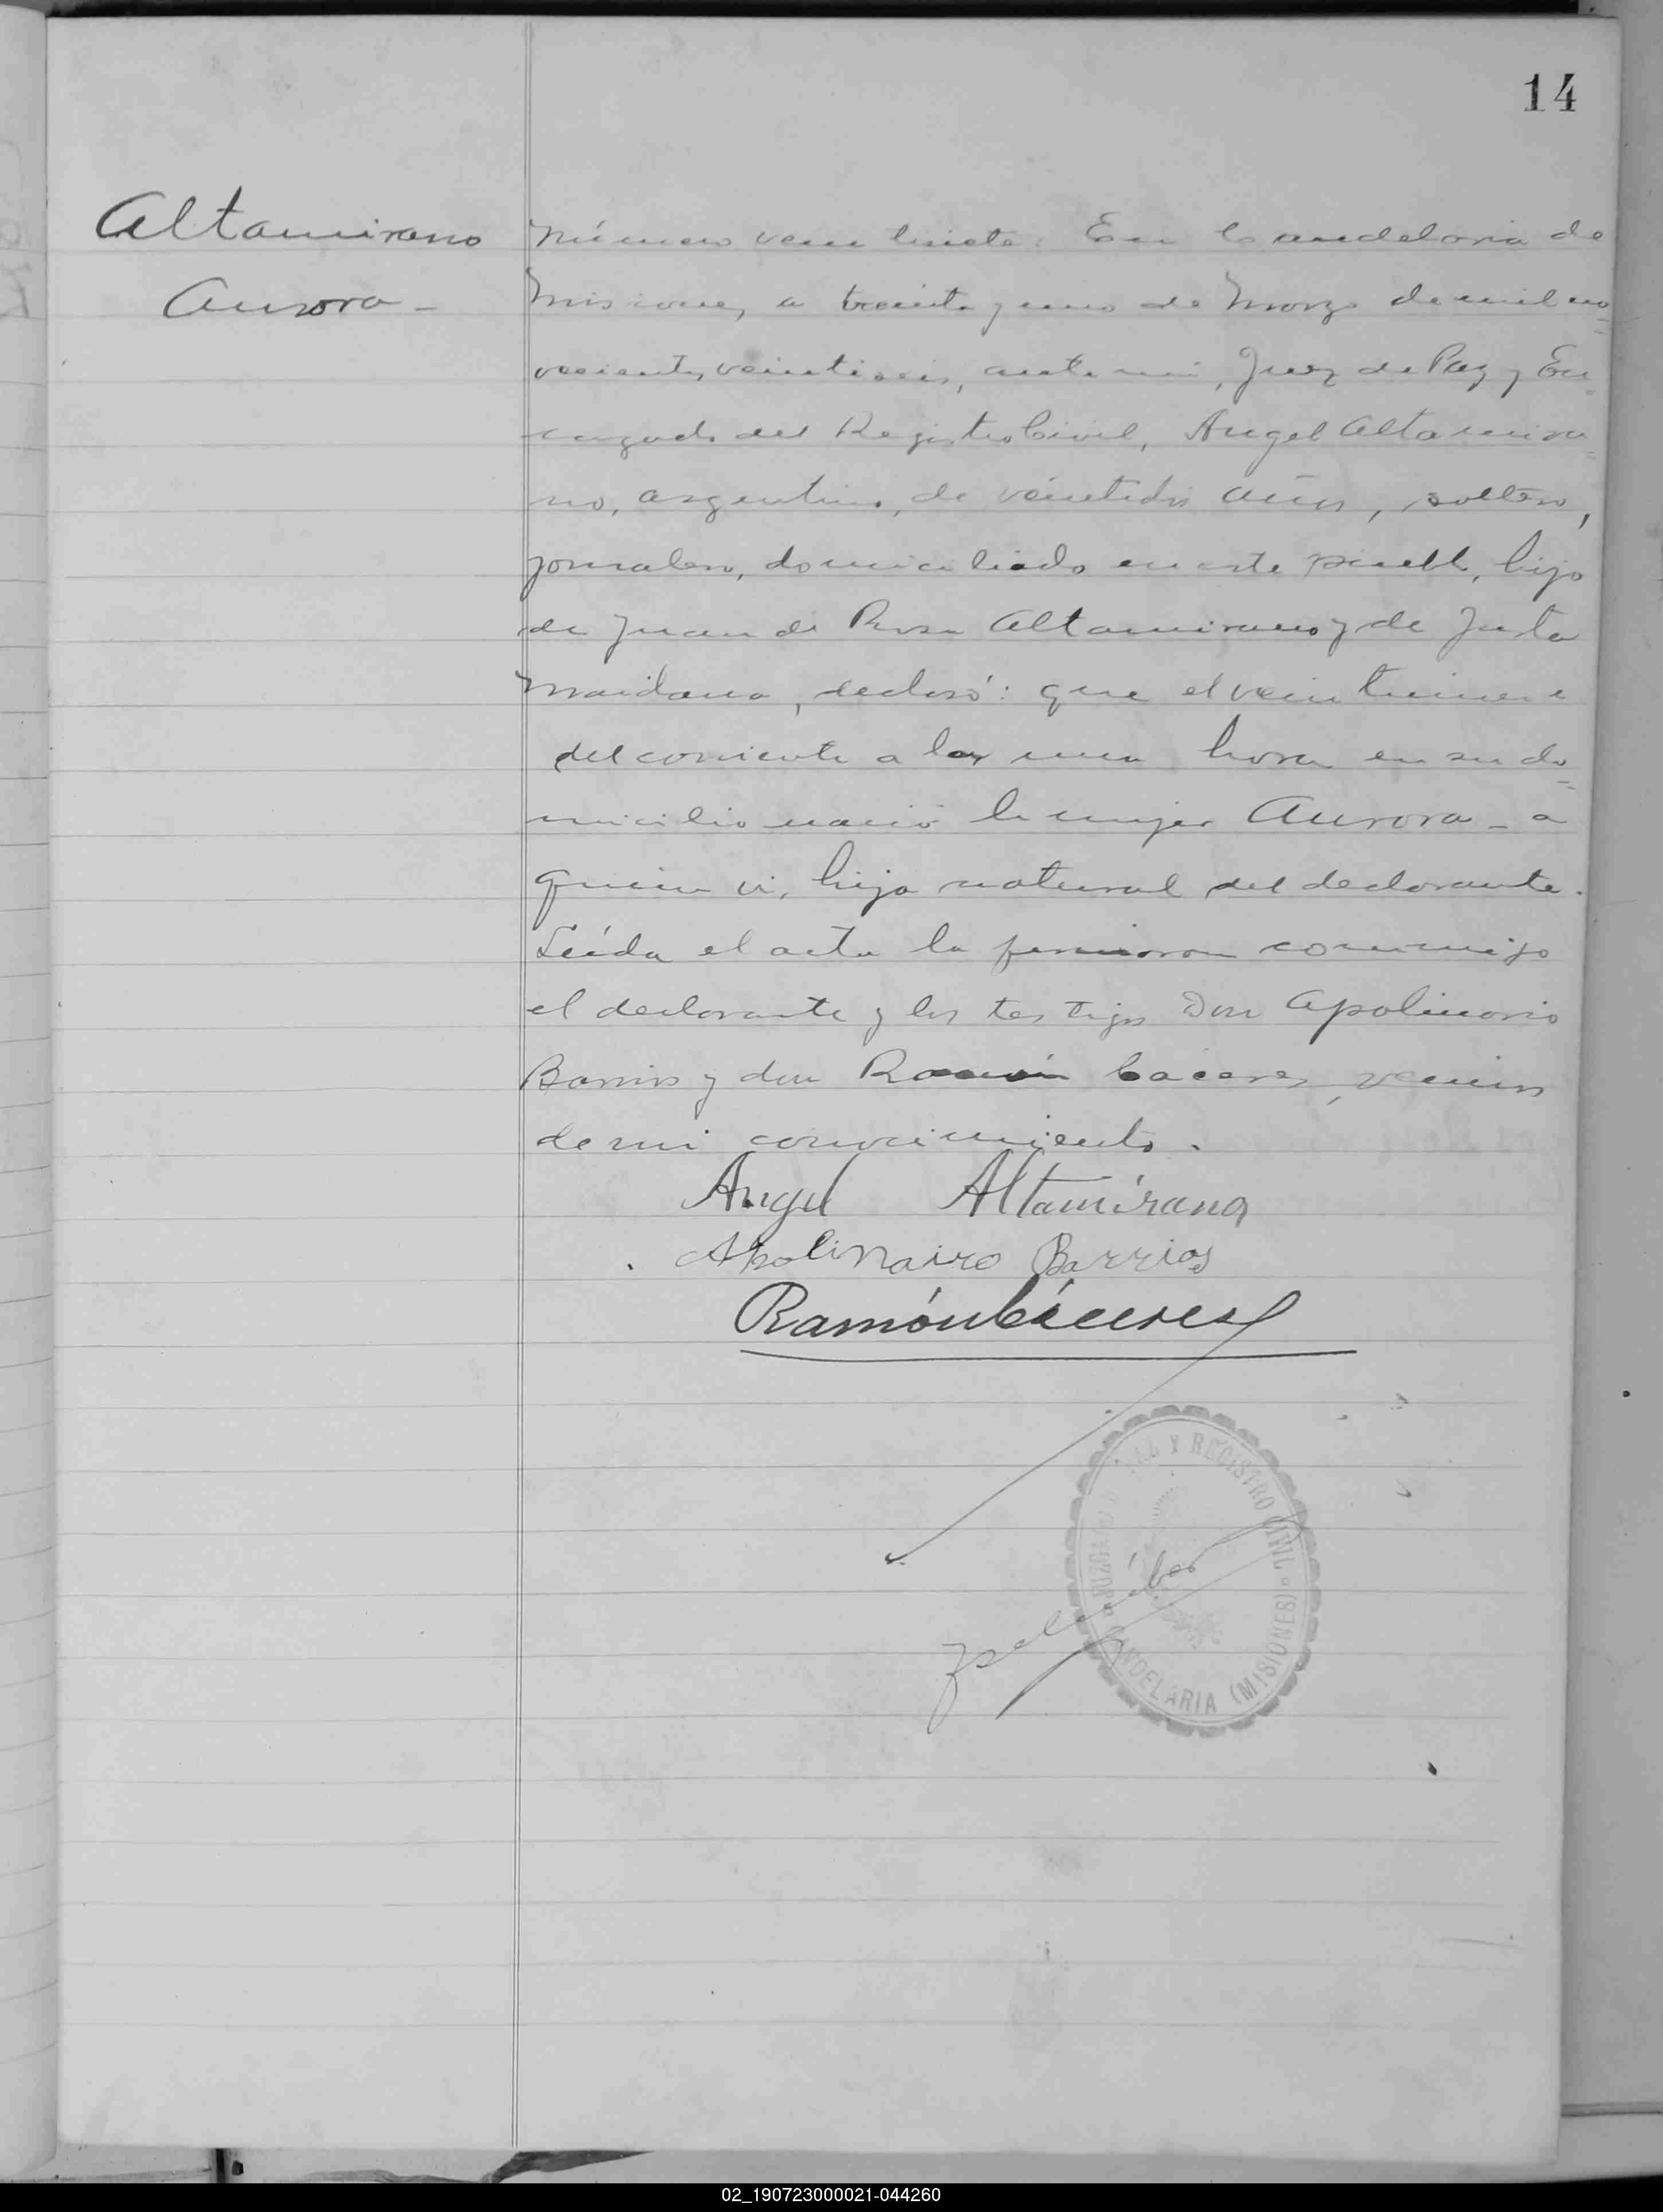 14
Altamirano
Aurora -
Número veintisiete: En Candelaria de
Misiones, a treinta y uno de Marzo de mil no=
vecientos veintiseis, ante mi, Juez de Paz y En=
cargado del Registro Civil, Angel Altamira=
no, argentino, de veintidos años, soltero,
jornalero, domiciliado en este pueblo, hijo
de Juan de Rosa Altamirano y de Justa
Maidana, declaró: que el veintinueve
del corriente a la una hora en su do=
micilio nació la mujer Aurora - a
quien vi, hija natural del declarante.
Leída el acta la firmaron conmigo
el declarante y los testigos Don Apolinario
Barrios y don Ramón Caceres, vecinos
de mi conocimiento.
Angel Altamirano
Apolinairo Barrios
Ramón Cáceres
JUZGADO DE PAZ Y REGISTRO CIVIL
CANDELARIA (MISIONES)
02_190723000021-044260